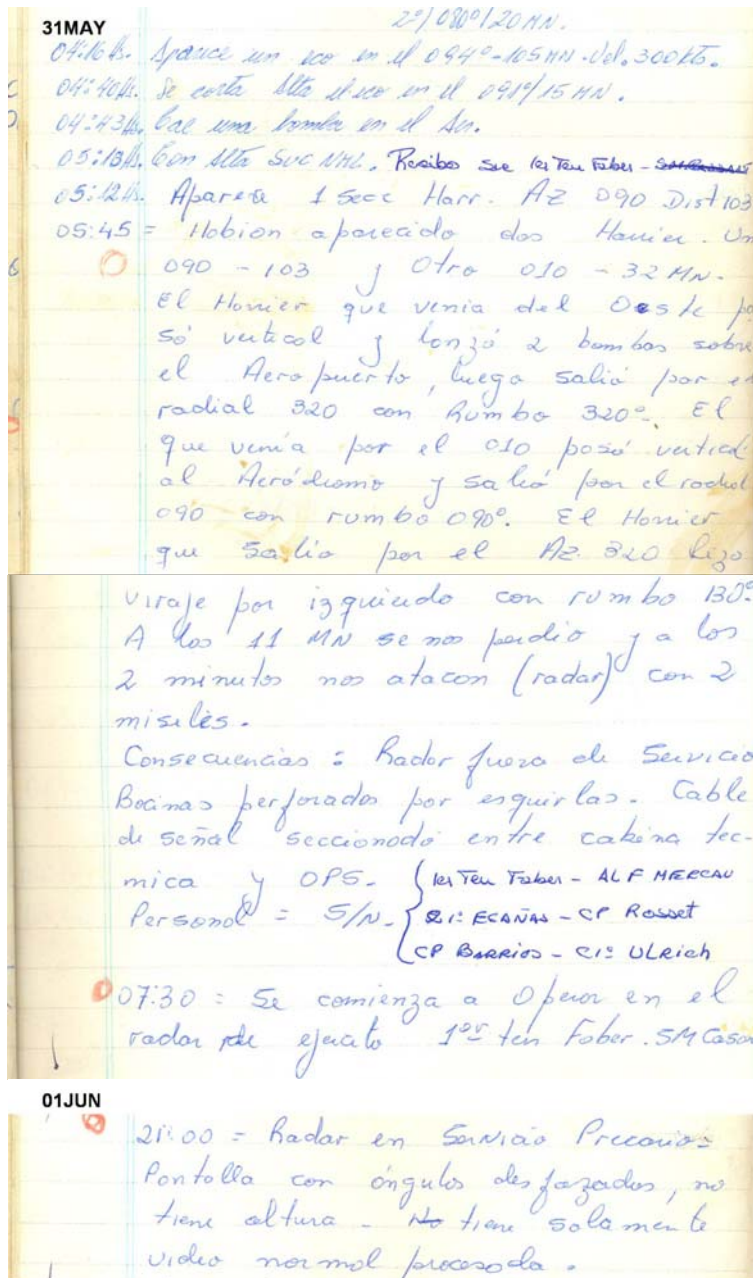 31MAY
2º/080º/20 MN.
04:16 Hs. Aparece un eco en el 094º-105 MN. Vel. 300 KTS.
04:40 Hs. Se corta Alta el eco en el 091º/15 MN.
04:43 Hs. Cae una bomba en el Aer.
05:13 Hs. Con Alta SVC NML. Recibo Sve 1er Ten Faber -
05:12 Hs. Aparece 1 Secc Harr. AZ 090 Dist 103
05:45 = Habian aparecido dos Harrier. Un
090 - 103 y Otro 010 - 32 MN.
El Harrier que venia del Oeste pa
só vertical y lanzó 2 bombas sobre
el Aeropuerto, luego salió por el
radial 320 con Rumbo 320º. El
que venía por el 010 pasó vertical
al Aeródromo y salió por el radial
090 con rumbo 090º. El Harrier
que salio por el Az. 320 hizo
viraje por izquierda con rumbo 130º
A los 11 MN se nos perdio y a los
2 minutos nos atacan (radar) con 2
misiles.
Consecuencias : Radar fuera de Servicio
Bocinas perforadas por esquirlas. Cable
de señal seccionado entre cabina tec-
mica y OPS. 1er Ten Faber - ALF MERCAU
Personal = S/N. ECAÑAS - CP Rosset
CP BARRIOS - C1º ULRich
07:30 : Se comienza a Operar en el
radar de ejercito 1er ten Faber. SM Casa
01JUN
21:00 = Radar en Servicio Precario =
Pantalla con ángulos desfazados, no
tiene altura - No tiene solamente
video normal procesada.